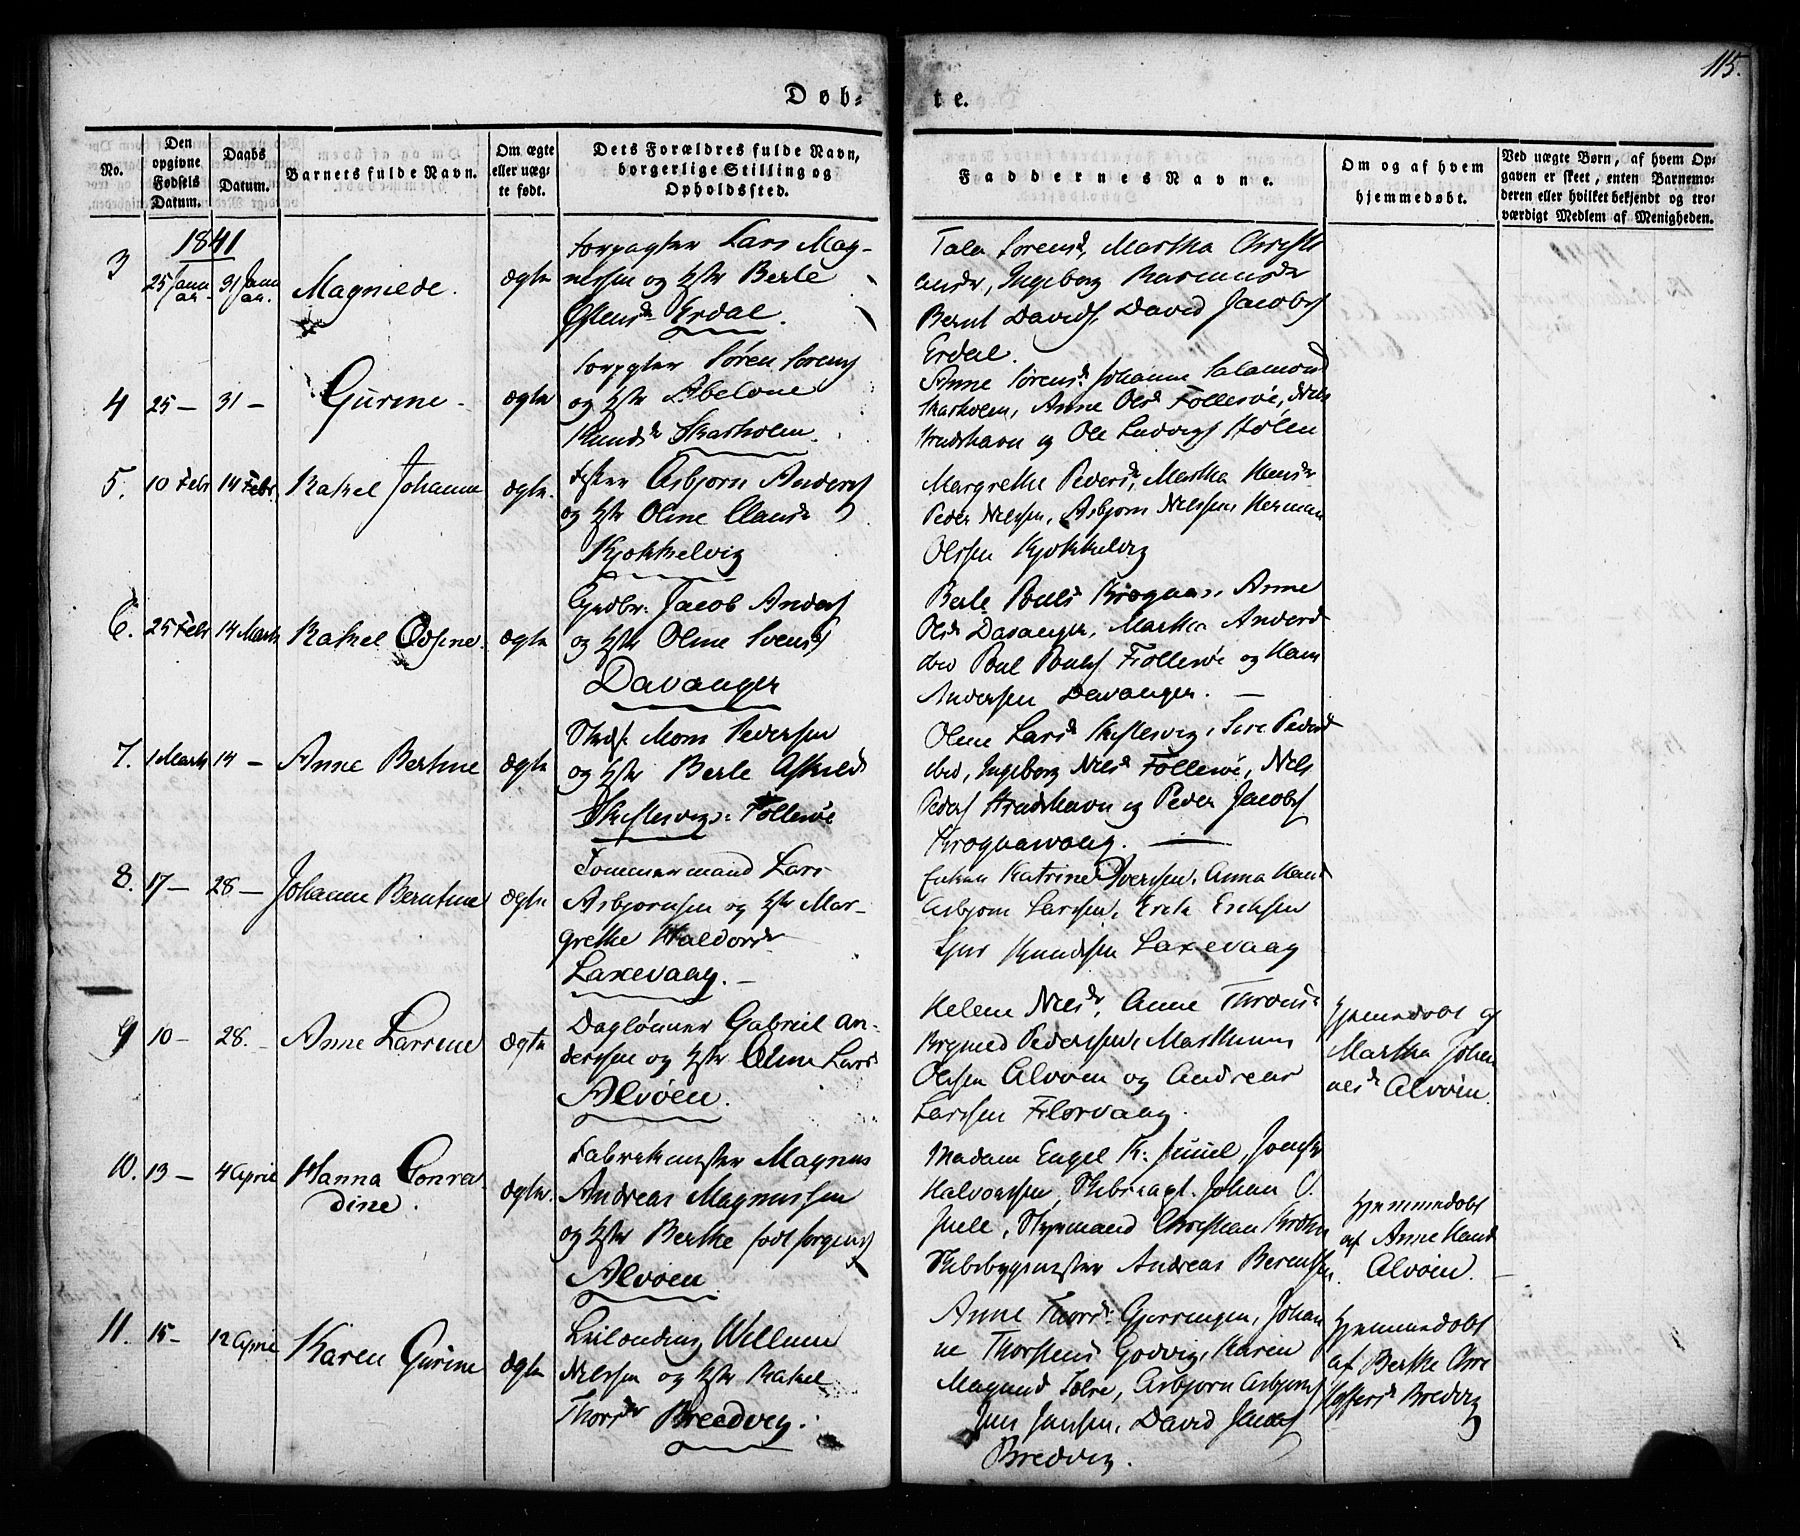 115.
Døb-
te.
No.
Den opgivne Fødsels Datum.
Daabs Datum.
Barnets fulde Navn.
Om ægte eller uægte født.
Dets Forældres fulde Navn, borgerlige Stilling og Opholdssted.
Faddernes Navne.
Om og af hvem hjemmedøbt.
Ved uægte Børn, af hvem Opgaven er skeet, enten Barnemoderen eller hvilket bekjendt og troværdigt Medlem af Menigheden.
1841
3
25 Janu
ar.
31 Janu
ar.
Magnilde.
ægte
Forpagter Lars Mag-
nessen og Hstr Berle
Ostensdr Erdal.
Tala Sørensdr, Martha Christi
ansdr, Ingeborg Rasmusdr
Bernt Davids, David Jacobs
Erdal.
4
25 —
31 —
Gurine.
ægte
Forpagter Sören Sörens
og Hstr Abelone
Knudsdr Skarholm.
Anne Sörensdr Johanne Salamons
Skarholm, Anne Olsdr Follesöe, Niels
Strudshavn og Ole Ludvigs Holen
5.
10 Febr
14 Febr.
Rakel Johanne
ægte.
Fisker Asbjørn Anders
og Hstr Oline Clausdr
Kjøkkelvig
Margrethe Pedersdr, Martha Hansdr
Peder Nilssen, Asbjørn Nilssen Herman
Olssen Kjøkkelvig
6.
25 Febr
14 Marts
Rakel Odsine.
ægte
Grdbr: Jacob Anders
og Hstr Oline Svensdr
Davanger
Berle Pouls Krognes, Anne
Olsdr Davanger, Martha Andersd
ibid Poul Pouls Follesöe og Hans
Andersen Davanger. —
7.
1 Marts
14 —
Anne Bertine
ægte
Strds: Mons Pedersen
og Hstr Berle Askilds
Skiftesvig: Follesöe
Oline Larsdr Skiftesvig, Siri Pedersd
ibid, Ingeborg Nielsdr Follesöe, Niels
Peders Strudshavn og Peder Jacobs
Krognavaag. —
8.
17 —
28 —
Johanne Berntine
ægte
Tommermand Lars
Asbjørnsen og Hstr Mar-
grethe Haldorsdr
Laxevaag. —
Enken Katrine Iverssen, Anna Hansd
Asbjørn Larssen, Erik Eriksen
Sjur Knudssen Laxevaag
9
10 —
28. —
Anne Larrine
ægte
Daglönner Gabriel An-
derssen og Hstr Oline Larsd
Alvöen.
Helene Nielsdr, Anne Thronsdr
Brynild Pederssen, Marthinus
Olssen Alvöen og Andreas
Larssen Florvaag.
Hjemmedøbt af
Martha Johan
nesdr Alvöen.
10.
13 —
4 April
Hanna Conra-
dine.
ægte.
Fabrikmester Magnus
Andreas Magnussen
og Hstr Berthe født Jörgens
Alvöen
Madam Engel K: Juuel, Jomfr
Halvorssen, Johan C.
Juele, Styrmand Christian Krohn
Skibsbygmester Andreas Berentsen.
Hjemmedøbt
af Anne Hansd
Alvöen.
11.
15 —
12 April
Karen Gurine
ægte
Leilænding Willum
Nilssen og Hstr Rakel
Thorsdr Bredvig.
Anne Thorsdr Gjerringen, Johan
ne Thorstens Godvig, Karen
Magnusd Tolre, Asbjørn Asbjørns
Jens Jenssen, David Jacobs
Bredvig.
Hjemmedøbt
af Berthe Chri
stoffersdr Bredvig